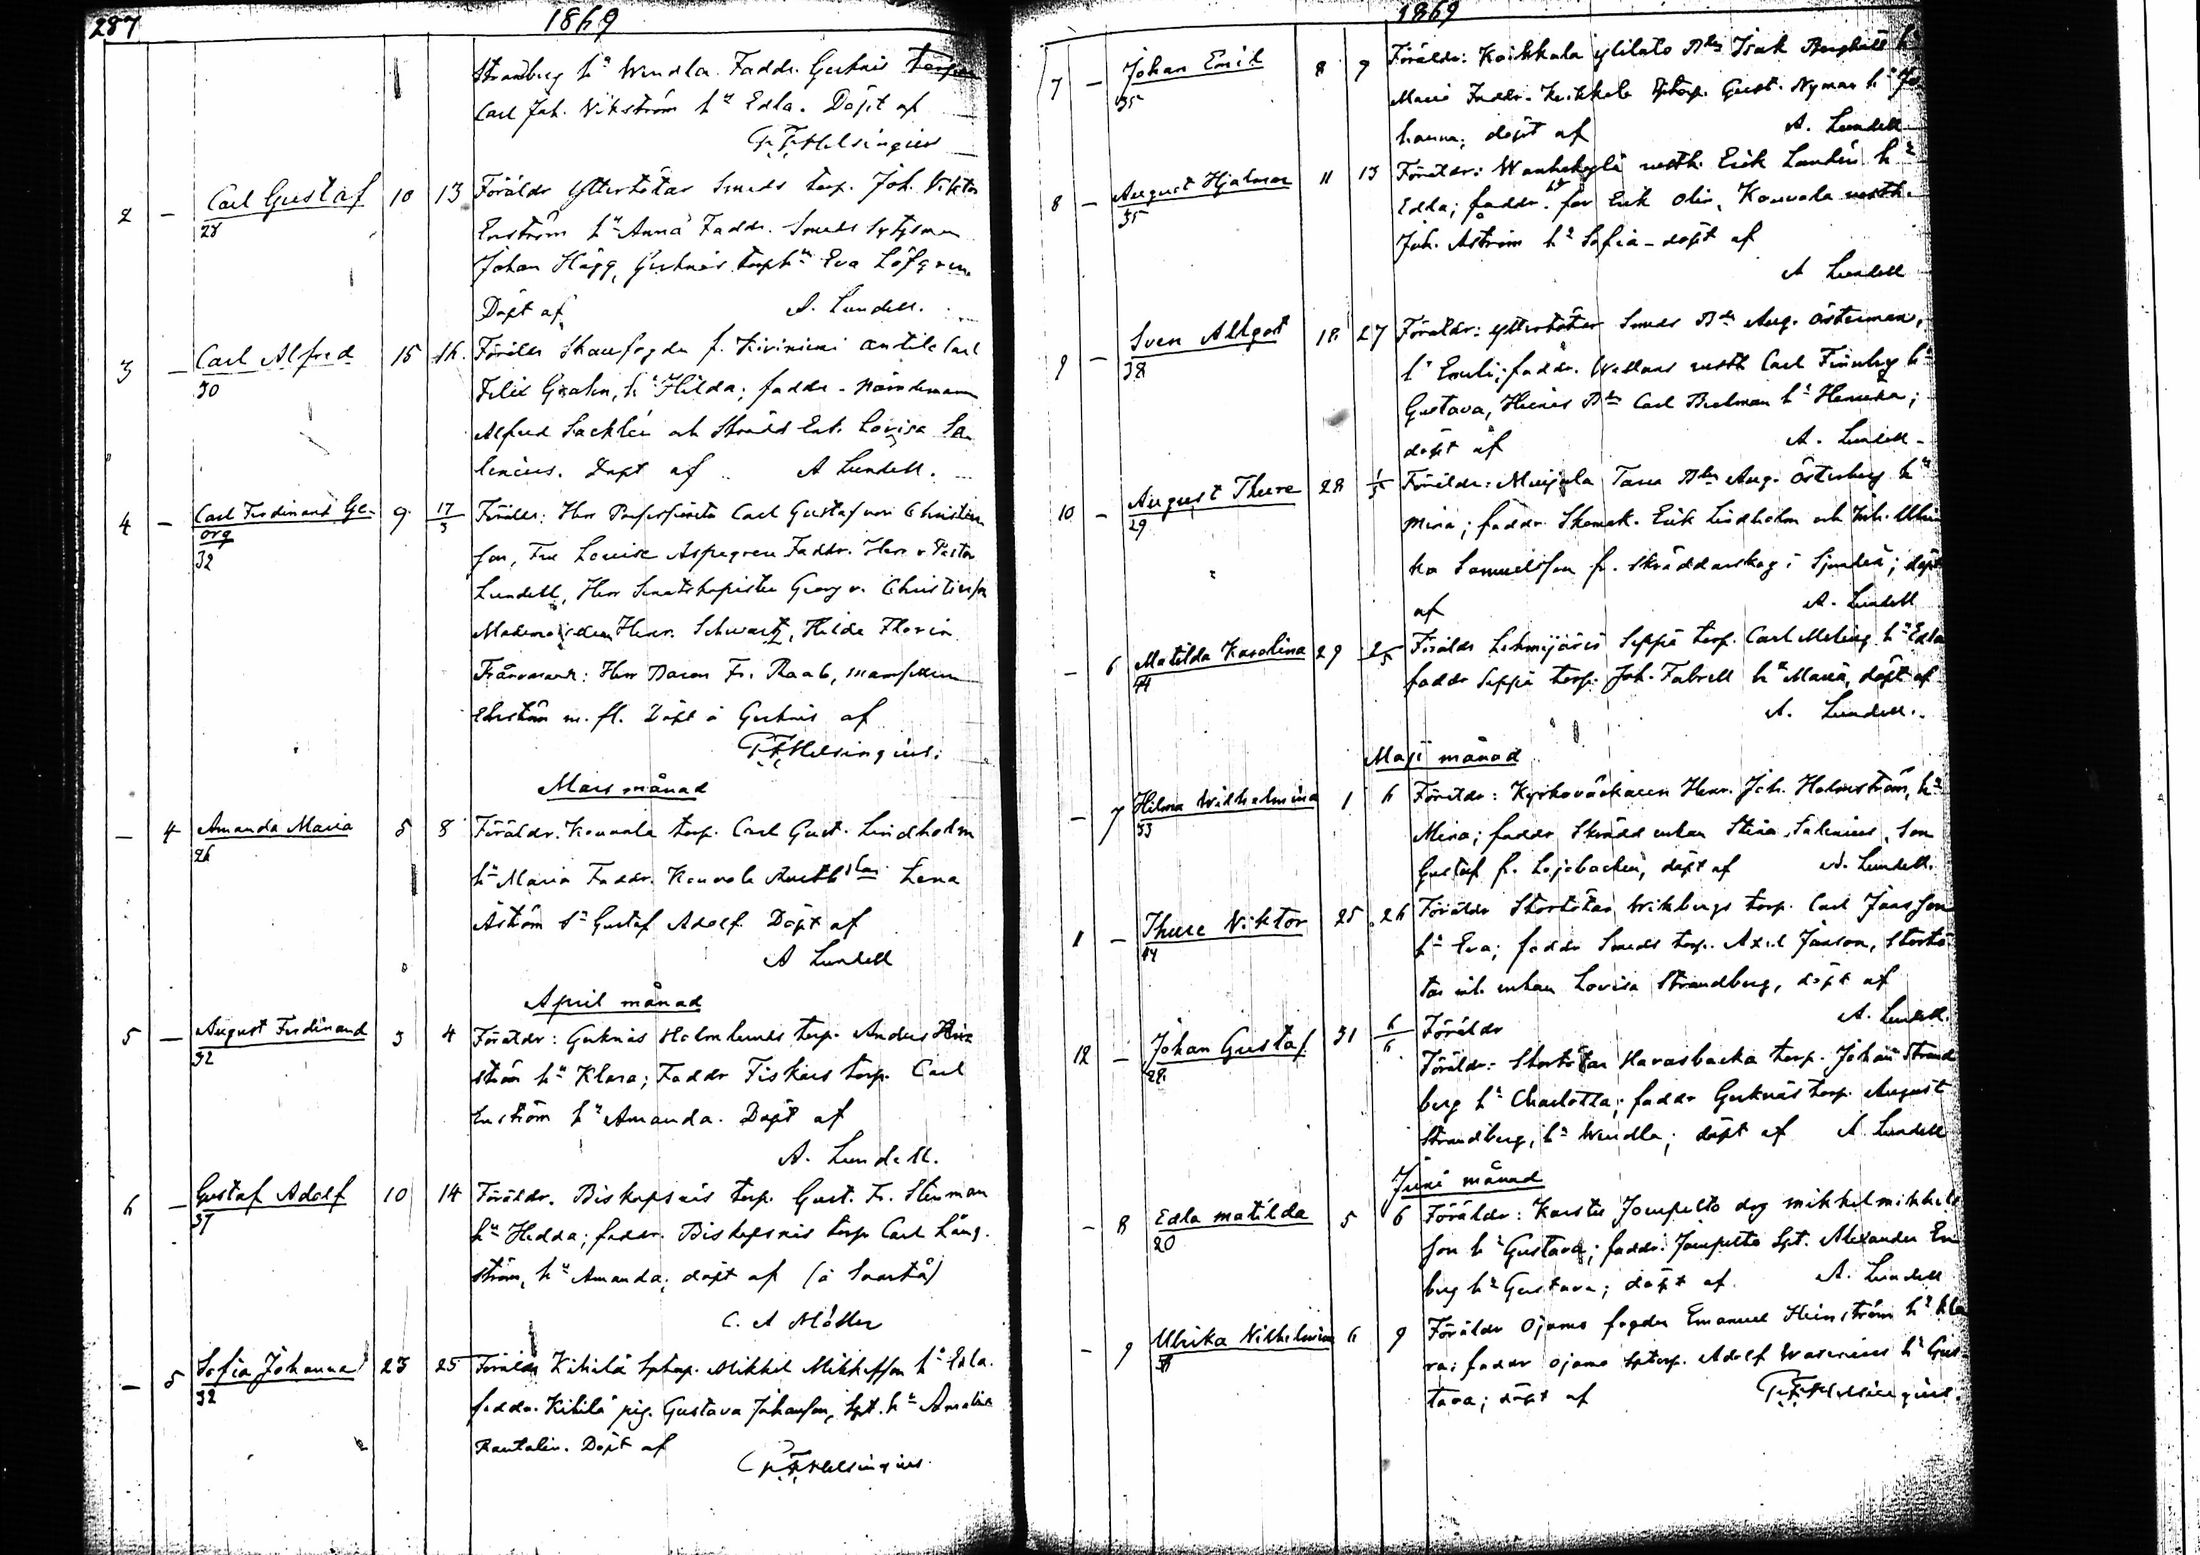 287
1869
Strandberg h:u Wendla. Faddr. Gerknäs torpar
Carl Joh. Wikström h:u Edla. Döpt af
F. F. Helsingius
2 — Carl Gustaf 10 13 Föräldr Yttertötar Smeds torp. Joh. Viktor
28
Enström h:u Anna Faddr. Smeds
Johan Hägg, Gerknäs torph:u Eva Löfgren
Döpt af A. Lundell.
3 — Carl Alfred 15 16. Föräldr Skaufogden f. Kiviniemi Anttila Carl
30
Felix Grahn, h:u Hilda; faddr - Nämndeman
Alfred Sacklén och Skrädd Enk. Lovisa Sa
lenius. Döpt af A Lundell.
4 — Carl Ferdinand Ge- 9 17/3 Föräldr: Herr Carl Gustaf von Christier
org
32
son, Fru Louise Aspegren Faddr. Herr v Pastor
Lundell, Herr Senatskopisten Georg v. Christierson
Mademoisellen Henr. Schwartz, Hilda Florin
Närvarande: Herr Baron Fr. Raab, mamsellen
Ehrström m. fl. Döpt å Gerknäs af
F. F. Helsingius.
Mars månad
— 4 Amanda Maria 5 8 Föräldr. Kouvola torp. Carl Gust. Lindholm
26
h:u Maria Faddr. Kouvola Lena
Åström S:n Gustaf Adolf. Döpt af
A Lundell
April månad
5 — August Ferdinand 3 4 Föräldr: Gerknäs Holmlunds torp. Anders
32
ström h:u Klara; Faddr Fiskars torp. Carl
Enström h:u Amanda. Döpt af
A. Lundell.
6 — Gustaf Adolf 10 14 Föräldr. Biskopsnäs torp. Gust. Fr. Stenman
37
h:u Hedda; faddr. Biskopsnäs torp Carl Läng-
ström, h:u Amanda; döpt af (å Svartå)
C. A Möller
— 5 Sofia Johanna 23 25 Föräldr Kihilä Sptorp. Mikkel Mikkelsson h:u Edla.
32
faddr. Kihilä pig. Gustava Johansson, Spt. h:u Amalia
Rautalin. Döpt af
F. F. Helsingius.
1869
7 — Johan Emil 8 9 Föräldr: Koikkala Ylitalo Isak Bergkull h:u
35
Maria Faddr. Koikkala Sptorp. Gust. Nyman h:u Jo
hanna; döpt af A. Lundell
8 — August Hjalmar 11 13 Föräldr: Wanhakylä Erik Landén h:u
35
Edla; faddr. för Erik Olin, Kouvola
Joh. Åström h:u Sofia - döpt af
A Lundell
9 — Sven Allgot 18 27 Föräldr: Yttertötar Smeds Aug. Österman,
38
h:u Emili; faddr. Carl Finnberg h:u
Gustava, Carl Beckman h:u
döpt af A. Lundell -
10 — August Thure 28 1/5 Föräldr: Muijala Aug. Österberg h:u
29
Mina; faddr. Skomak. Erik Lindholm och
ka Samuelsson fr. Skräddarskog i Sjundeå; döpt
af A. Lundell
— 6 Matilda Karolina 29 2/5 Föräldr Lohmijärvi Seppä torp. Carl Meling h:u Edla
44
faddr Seppä torp. Joh. Fabrell h:u Maria, döpt af
A. Lundell.
Maji månad
— 7 Hilma Wilhelmina 1 6 Föräldr: Kyrkoväktaren Henr. Joh. Holmström, h:u
33
Mina; faddr Skrädd enkan Stina Salenius, Son
Gustaf f. Lojobacken, döpt af A. Lundell.
1 — Thure Viktor 25 26 Föräldr Stortötar Wikbergs torp. Carl Jansson
44
h:u Eva; faddr Smeds torp. Axel Janson, Stortö
tar enkan Lovisa Strandberg, döpt af
A. Lundell.
12 — Johan Gustaf 31 6/6 Föräldr
28
Föräldr: Stortötar Harasbacka torp. Johan Strand
berg h:u Charlotta; faddr Gerknäs torp. August
Strandberg, h:u Wendla; döpt af A Lundell
Juni månad
— 8 Edla Matilda 5 6 Föräldr: Karstu Jompelto drg Mikkel Mikkels
20
son h:u Gustava; faddr: Jompelto Spt. Alexander En
berg h:u Gustava; döpt af A. Lundell
— 9 Ulrika Vilhelmina 6 9 Föräldr Ojamo fogden Emanuel Heinström h:u Kla
ra; faddr Ojamo Sptorp. Adolf Wasenius h:u Gus-
tava; döpt af F. F. Helsingius.